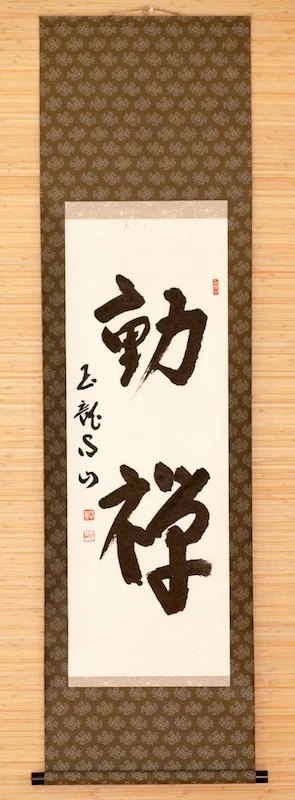 動禅
玉龍山